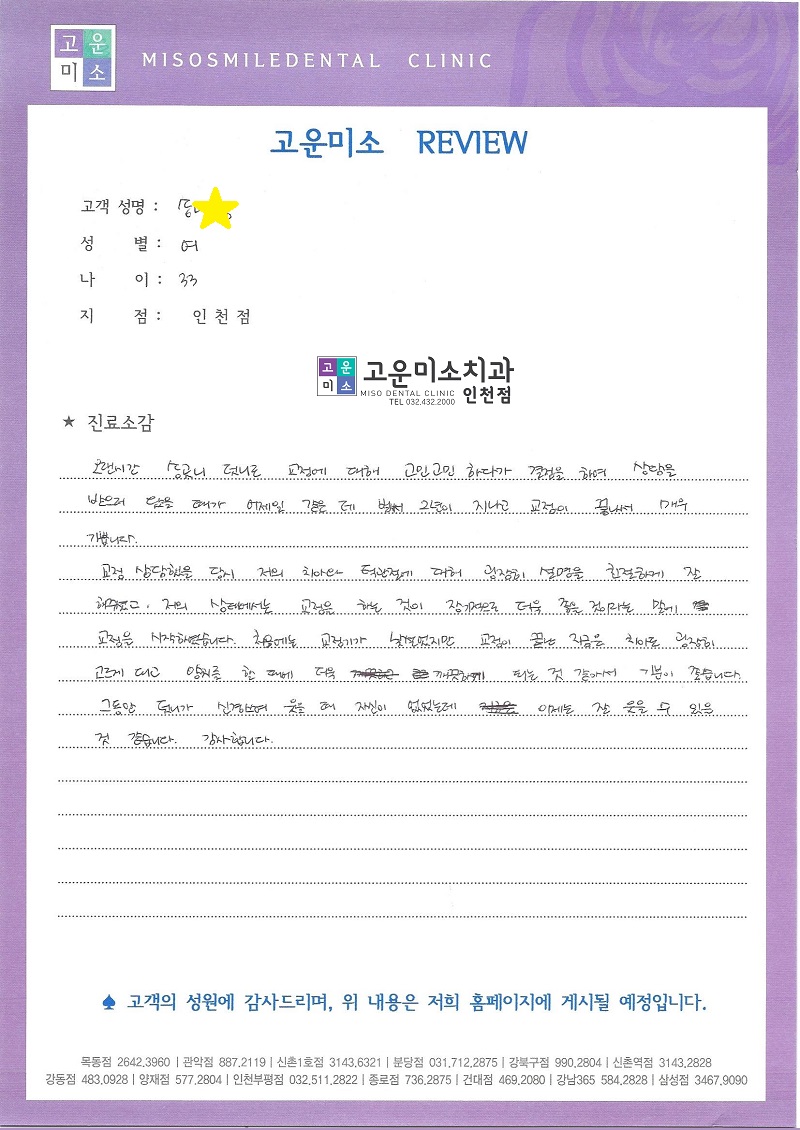 고운
미소
MISOSMILEDENTAL CLINIC
고운미소 REVIEW
고객 성명 :
성 별 : 여
나 이 : 33
지 점 : 인천점
고운
미소
고운미소치과
MISO DENTAL CLINIC 인천점
TEL 032.432.2000
★ 진료소감
오랜시간 송곳니 덧니로 교정에 대해 고민고민 하다가 결정을 하여 상담을
받으러 왔을 때가 어제일 같은 데 벌써 2년이 지나고 교정이 끝나서 매우
기쁩니다.
교정 상담했을 당시 저의 치아와 턱관절에 대해 굉장히 설명을 친절하게 잘
해주셨고, 저의 상태에서는 교정을 하는 것이 장기적으로 더욱 좋을 것이라는 말에
교정을 시작하였습니다. 처음에는 교정기가 낯설었지만 교정이 끝난 지금은 치아도 굉장히
고르게 되고 양치를 한 때에 더욱 깨끗하게 되는 것 같아서 기분이 좋습니다.
그동안 덧니가 신경쓰여 웃을 때 자신이 없었는데 이제는 잘 웃을 수 있을
것 같습니다. 감사합니다.
♠ 고객의 성원에 감사드리며, 위 내용은 저희 홈페이지에 게시될 예정입니다.
목동점 2642.3960 | 관악점 887.2119 | 신촌1호점 3143.6321 | 분당점 031.712.2875 | 강북구점 990.2804 | 신촌역점 3143.2828
강동점 483.0928 | 양재점 577.2804 | 인천부평점 032.511.2822 | 종로점 736.2875 | 건대점 469.2080 | 강남365 584.2828 | 삼성점 3467.9090